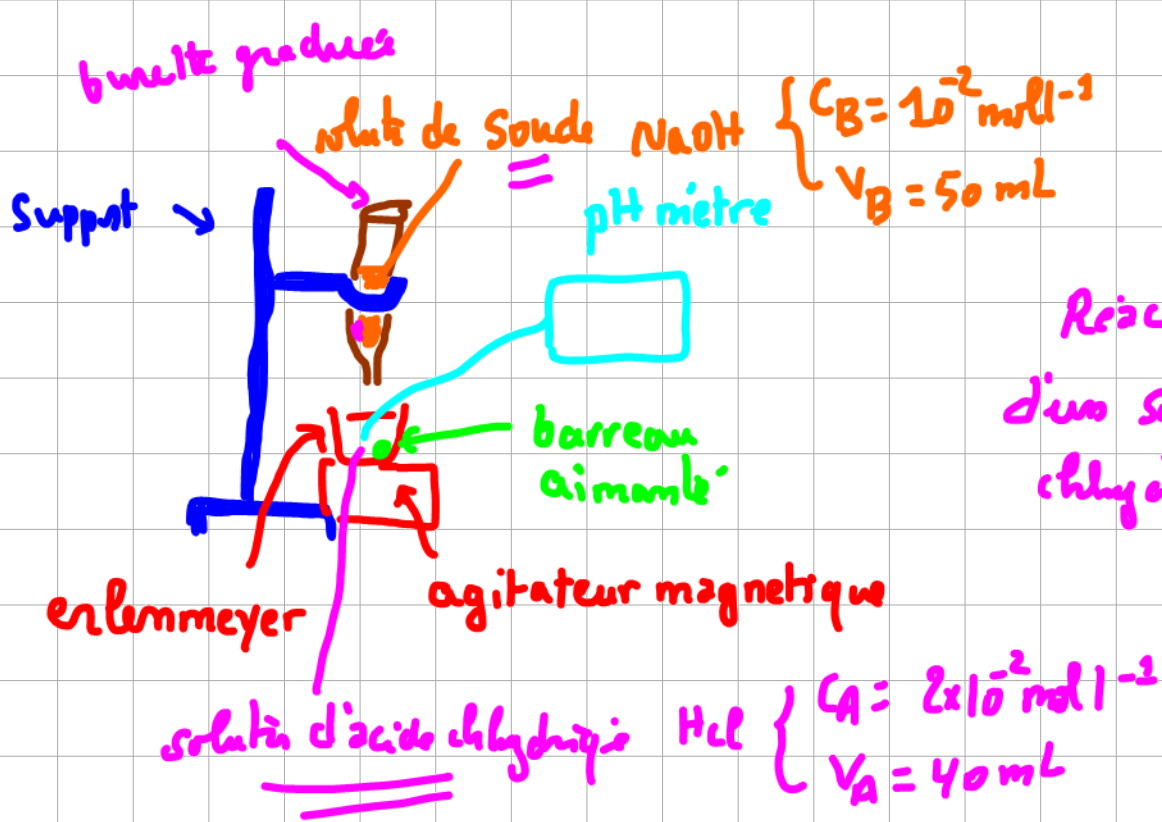 burette graduée
solut° de soude NaOH { CB = 10⁻² mol l⁻¹
VB = 50 mL
support
pH mètre
Réac
d'un s
barreau
aimanté
chlhyd
erlenmeyer
agitateur magnetique
solution d'acide chlhydrique Hcl { CA = 2x10⁻² mol l⁻¹
VA = 40 mL